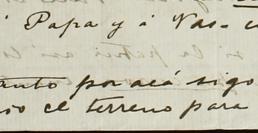 Papa y á Vas
anto por acá sigo
el terreno para